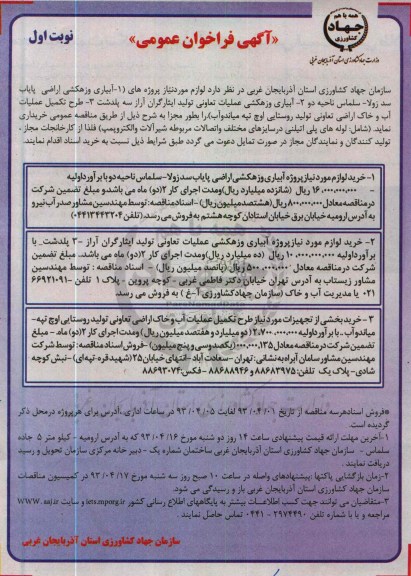 همه با هم
جهاد
کشاورزی
وزارت جهاد کشاورزی استان آذربایجان غربی
«آگهی فراخوان عمومی»
نوبت اول
سازمان جهاد کشاورزی استان آذربایجان غربی در نظر دارد لوازم موردنیاز پروژه های (۱-آبیاری وزهکشی اراضی پایاب
سد زولا- سلماس ناحیه دو ۲- آبیاری وزهکشی عملیات تعاونی تولید ایثارگران آراز سه پلدشت ۳- طرح تکمیل عملیات
آب و خاک اراضی تعاونی تولید روستایی اوچ تپه میاندوآب)را بطور مجزا به شرح ذیل از طریق مناقصه عمومی خریداری
نماید. (شامل: لوله های پلی اتیلنی درسایزهای مختلف واتصالات مربوطه شیرآلات والکتروپمپ) فلذا از کارخانجات مجاز ،
تولید کنندگان و نمایندگان مجاز در صورت تمایل دعوت می گردد - طبق شرایط ذیل نسبت به خرید اسناد اقدام نمایند.
۱-خرید لوازم مورد نیاز پروژه آبیاری وزهکشی اراضی پایاب سد زولا-سلماس ناحیه دو با برآورد اولیه
۱۶.۰۰۰.۰۰۰.۰۰۰ ریال (شانزده میلیارد ریال)ومدت اجرای کار ۲(دو) ماه می باشدو مبلغ تضمین شرکت
در مناقصه معادل ۸۰۰.۰۰۰.۰۰۰ ریال (هشتصدمیلیون ریال) -اسنادمناقصه: توسط مهندسین مشاور صدر آب نیرو
به آدرس ارومیه خیابان برق خیابان استادان کوچه هشتم به فروش می رسد.(تلفن ۰۴۴۱۳۴۴۳۲۰۴)
۲- خرید لوازم مورد نیاز پروژه آبیاری وزهکشی عملیات تعاونی تولید ایثارگران آراز -۳ پلدشت_ با
برآورداولیه ۱۰.۰۰۰.۰۰۰.۰۰۰ ریال (ده میلیارد ریال)ومدت اجرای کار ۲(دو) ماه می باشد. مبلغ تضمین
شرکت در مناقصه معادل ۵۰۰.۰۰۰.۰۰۰ ریال (پانصد میلیون ریال)- اسناد مناقصه : توسط مهندسین
مشاور زیستاب به آدرس تهران خیابان دکتر فاطمی غربی - کوچه پروین - پلاک ۱ تلفن ۶۶۹۲۱۰۹۱-
۰۲۱ یا مدیریت آب و خاک (سازمان جهادکشاورزی آ-غ ) به فروش می رسد.
۳ -خریدبخشی از تجهیزات مورد نیاز طرح تکمیل عملیات آب و خاک اراضی تعاونی تولید روستایی اوچ تپه-
میاندوآب-با برآورد اولیه ۲.۷۰۰.۰۰۰.۰۰۰ (دو میلیارد و هفتصد میلیون ریال) ومدت اجرای کار ۲(دو) ماه - مبلغ
تضمین شرکت در مناقصه معادل ۱۳۵.۰۰۰.۰۰۰ (یکصدوسی و پنج میلیون) -فروش اسناد مناقصه: توسط شرکت
مهندسین مشاور سامان آبراه به نشانی: تهران -سعادت آباد -انتهای خیابان ۲۵(شهید قره تپه ای) -نبش کوچه
شادی- پلاک یک تلفن: ۸۸۶۸۳۹۷۵ و ۸۸۶۸۸۹۴۶ -فکس: ۸۸۶۹۳۰۷۴
*فروش اسنادهرسه مناقصه از تاریخ ۹۳/۰۴/۰۱ لغایت ۹۳/۰۴/۰۵ در ساعات اداری ،آدرس برای هرپروژه درمحل ذکر
گردیده است.
۱-آخرین مهلت ارائه قیمت پیشنهادی ساعت ۱۴ روز دو شنبه مورخ ۹۳/۰۴/۱۶ که به آدرس ارومیه - کیلو متر ۵ جاده
سلماس - سازمان جهاد کشاورزی استان آذربایجان غربی ساختمان شماره یک - دبیر خانه مرکزی سازمان تحویل و رسید
دریافت نمایند.
۲-زمان بازگشایی پاکتها :پیشنهادهای واصله در ساعت ۱۰ صبح روز سه شنبه مورخ ۹۳/۰۴/۱۷ در کمیسیون مناقصات
سازمان جهاد کشاورزی استان آذربایجان غربی باز و رسیدگی می شود.
۳-متقاضیان می توانند جهت کسب اطلاعات بیشتر به پایگاههای اطلاع رسانی کشور iets.mporg.ir و سایت WWW. aaj.ir
مراجعه و یا با شماره تلفن ۲۹۷۴۴۹۰ - ۰۴۴۱ تماس حاصل نمایند .
سازمان جهاد کشاورزی استان آذربایجان غربی